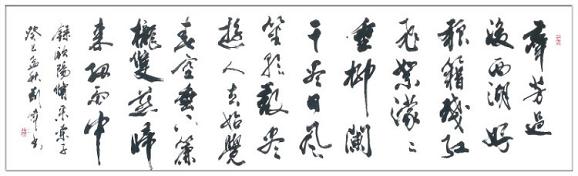 羣芳過
後西湖好
狼籍殘紅
飛絮濛〻
垂柳闌
干尽日風
笙歌散尽
遊人去始覺
春空垂下簾
櫳雙燕歸
來細雨中
錄歐陽脩采桑子
癸巳孟秋